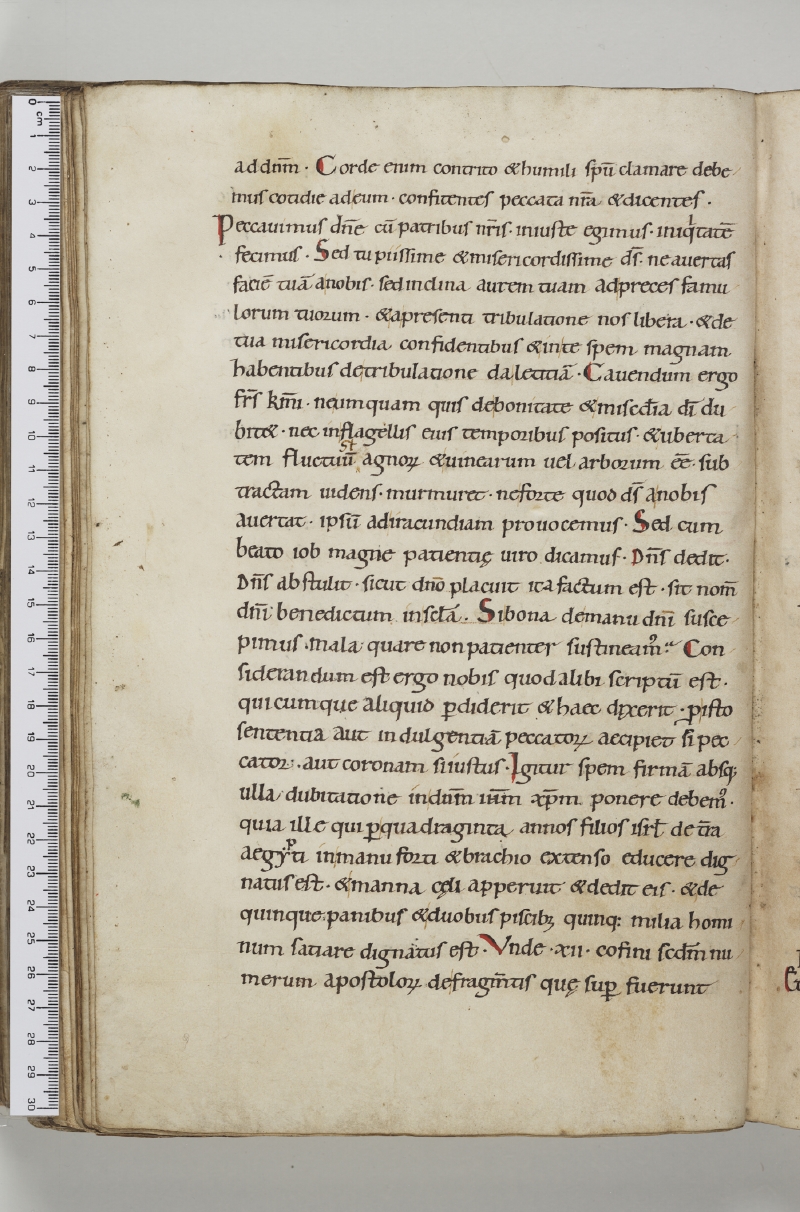 ad dnm̅ · Corde enim contrito & humili sp̅u clamare debe
mus cotidie ad eum · confitentes peccata nr̅a & dicentes ·
Peccauimus dn̅e cu̅ patribus nr̅is · iniuste egimus · iniq̍tate̅
fecimus · Sed tu piissime & misericordissime d̅s · ne auertas
facie̅ tua̅ a nobis · sed inclina aurem tuam ad preces famu
lorum tuorum · & a presenti tribulatione nos libera · & de
tua misericordia confidentibus & in te spem magnam
habentibus de tribulatione da letitia̅ · Cauendum ergo
fr̅s k̅mi · ne umquam quis de bonitate & misc̅dia d̅i du
bit& · nec in flagellis eius temporibus positus · & uberta
tem fluctuu̅ st̅ agroꝝ & uinearum uel arborum e̅e · sub
tractam uidens · murmuret · ne forte quod d̅s a nobis
auertat · ipsu̅ ad iracundiam prouocemus · Sed cum
beato iob magnę patientię uiro dicamus · Dn̅s dedit ·
Dn̅s abstulit · sicut dn̅o placuit ita factum est · sit nom̅
dn̅i benedictum in sc̅la̅ · Si bona de manu dn̅i susce
pimus · mala quare non patienter sustineamꝰ · Con
siderandum est ergo nobis quod alibi scriptu̅ est ·
quicumque aliquid ꝑdiderit & haec dixerit · ꝑ isto
sententia aut indulgentia̅ peccatoꝝ accipiet si pec
cator · aut coronam si iustus · Igitur spem firma̅ absq;
ulla dubitatione in dn̅m ih̅m xp̅m ponere debemꝰ ·
quia ille qui ꝑ quadraginta annos filios isrl̅ de t̅ra
aegypti in manu forti & brachio extenso educere dig
natus est · & manna cęli apperuit & dedit eis · & de
quinque panibus & duobus piscib; quinq: milia homi
num satiare dignatus est · Vnde · xii · cofini scdm̅ nu
merum apostoloꝝ de fragm̅tis quę suꝑfuerunt